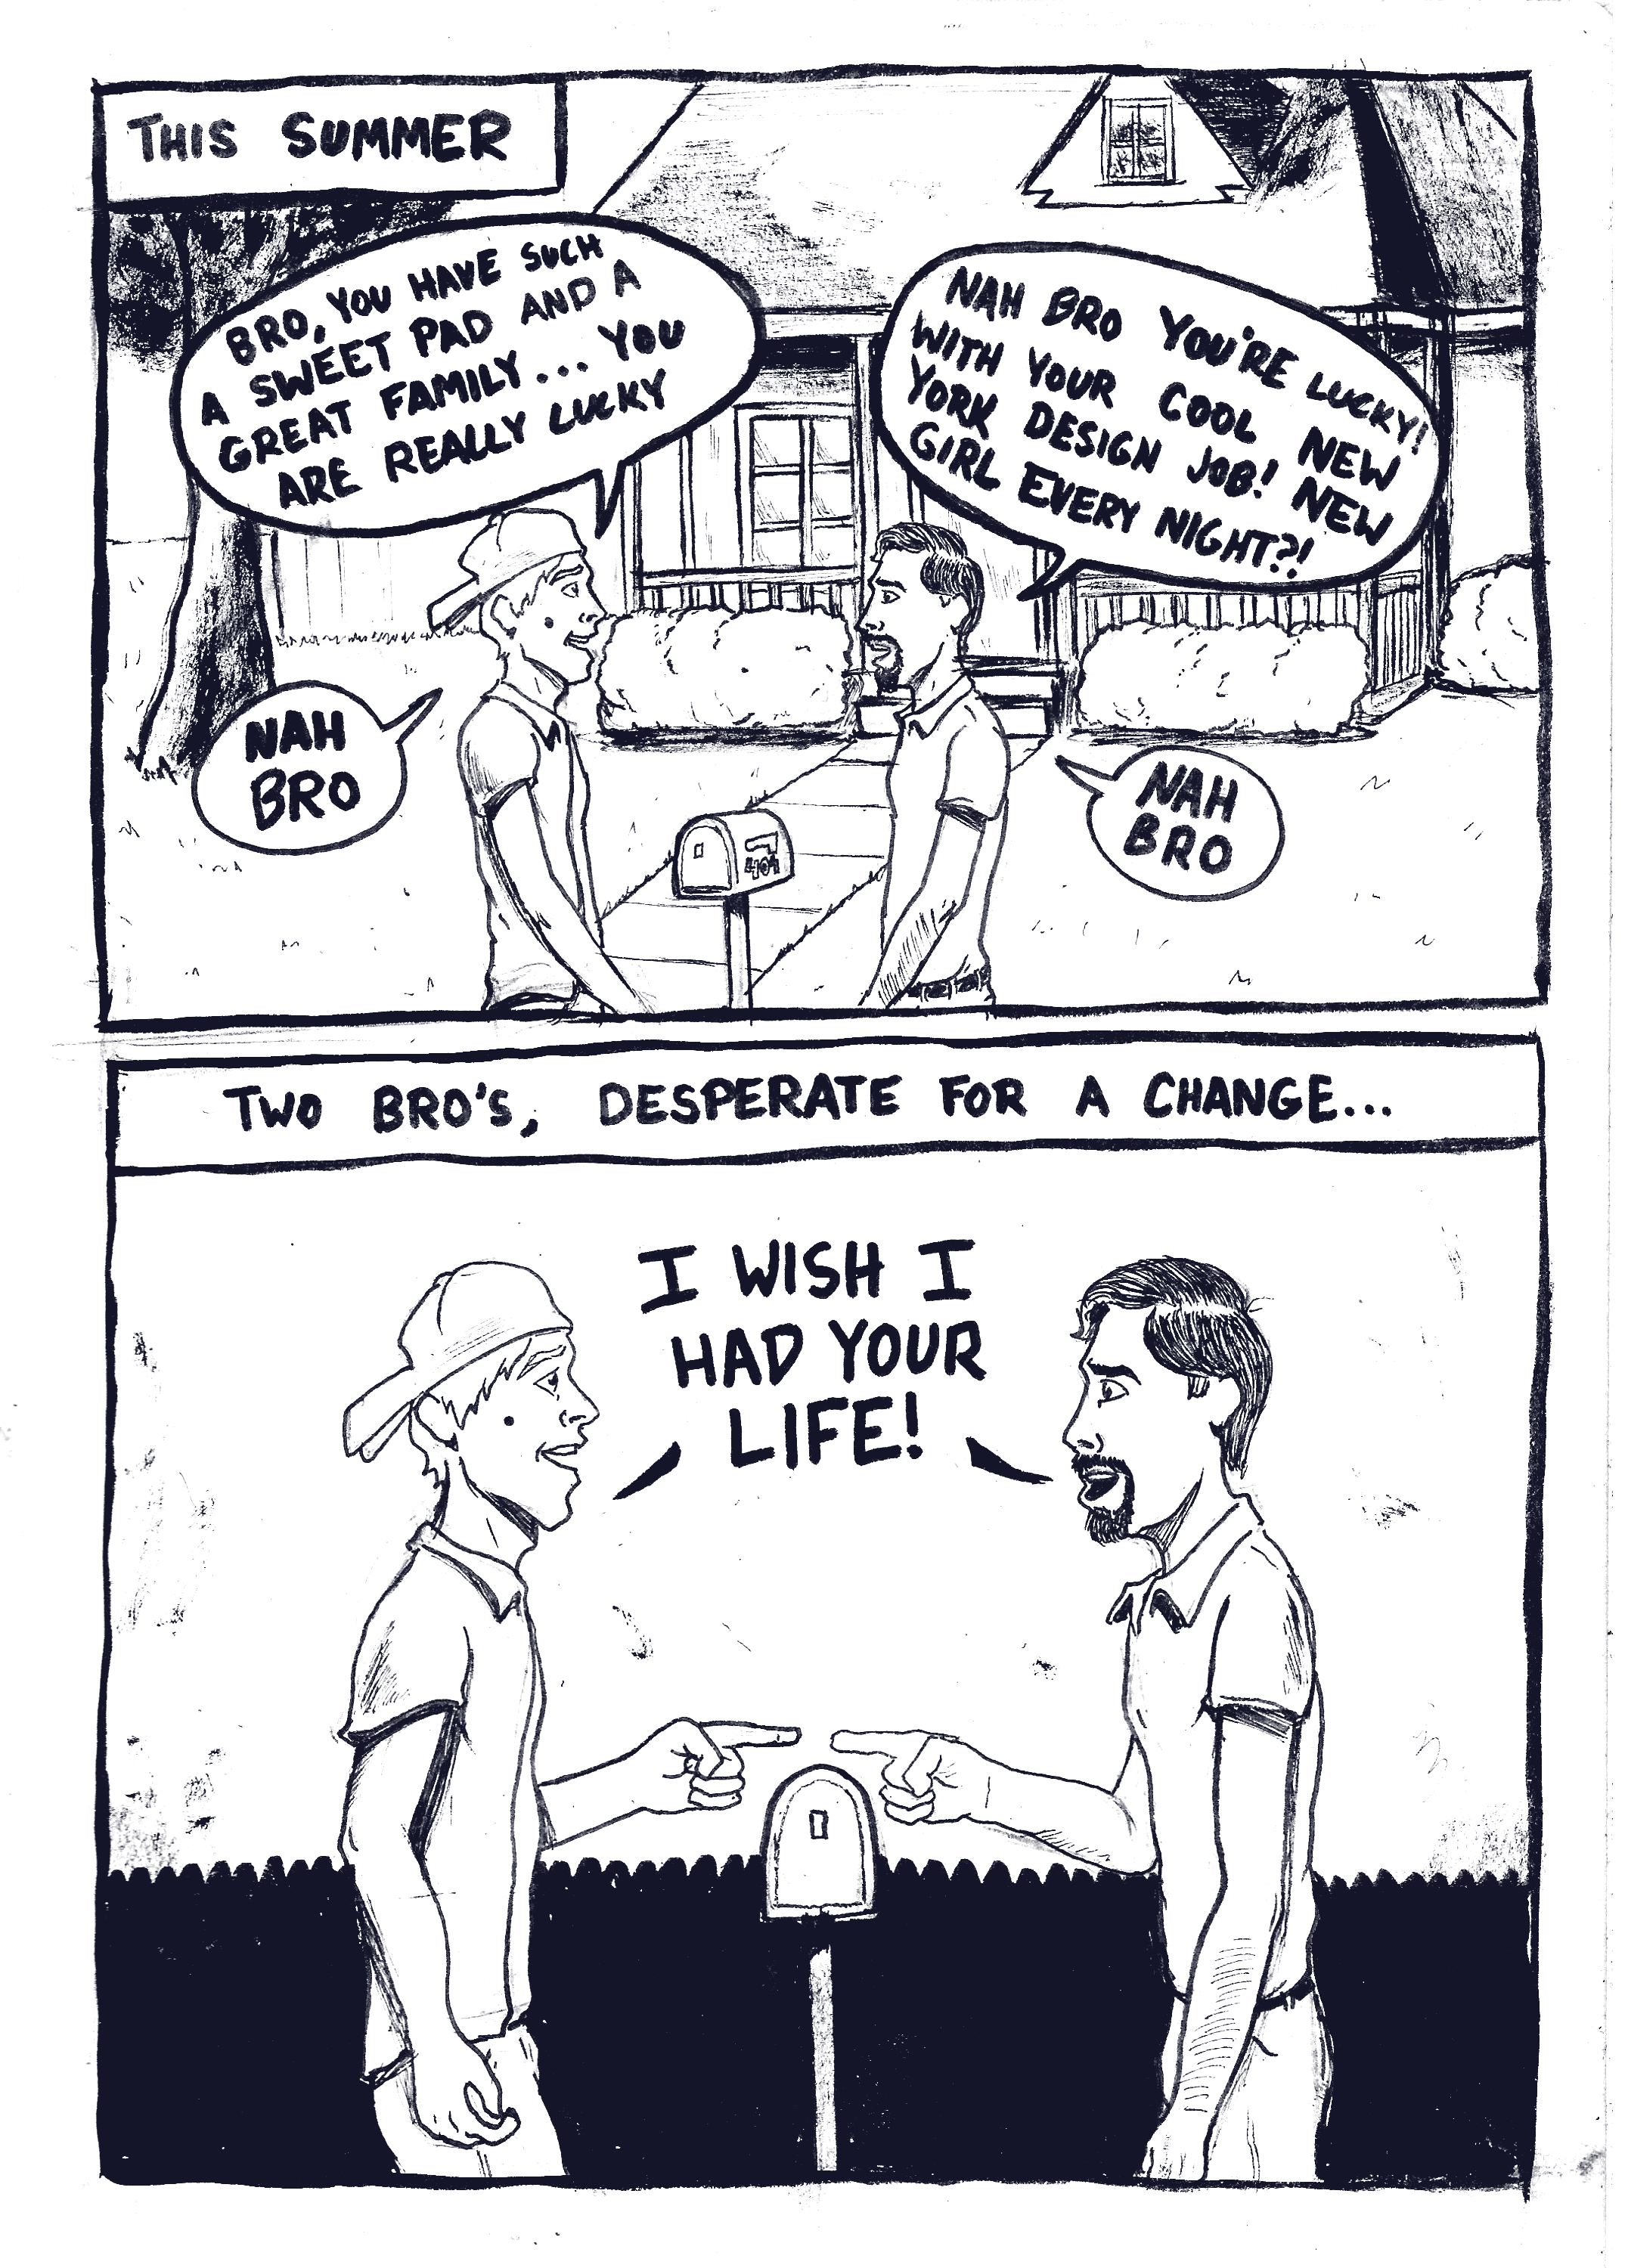 THIS SUMMER
BRO, YOU HAVE SUCH
A SWEET PAD AND A
GREAT FAMILY... YOU
ARE REALLY LUCKY
NAH BRO YOU'RE LUCKY!
WITH YOUR COOL NEW
YORK DESIGN JOB! NEW
GIRL EVERY NIGHT?!
NAH
BRO
NAH
BRO
404
TWO BRO'S, DESPERATE FOR A CHANGE...
I WISH I
HAD YOUR
LIFE!